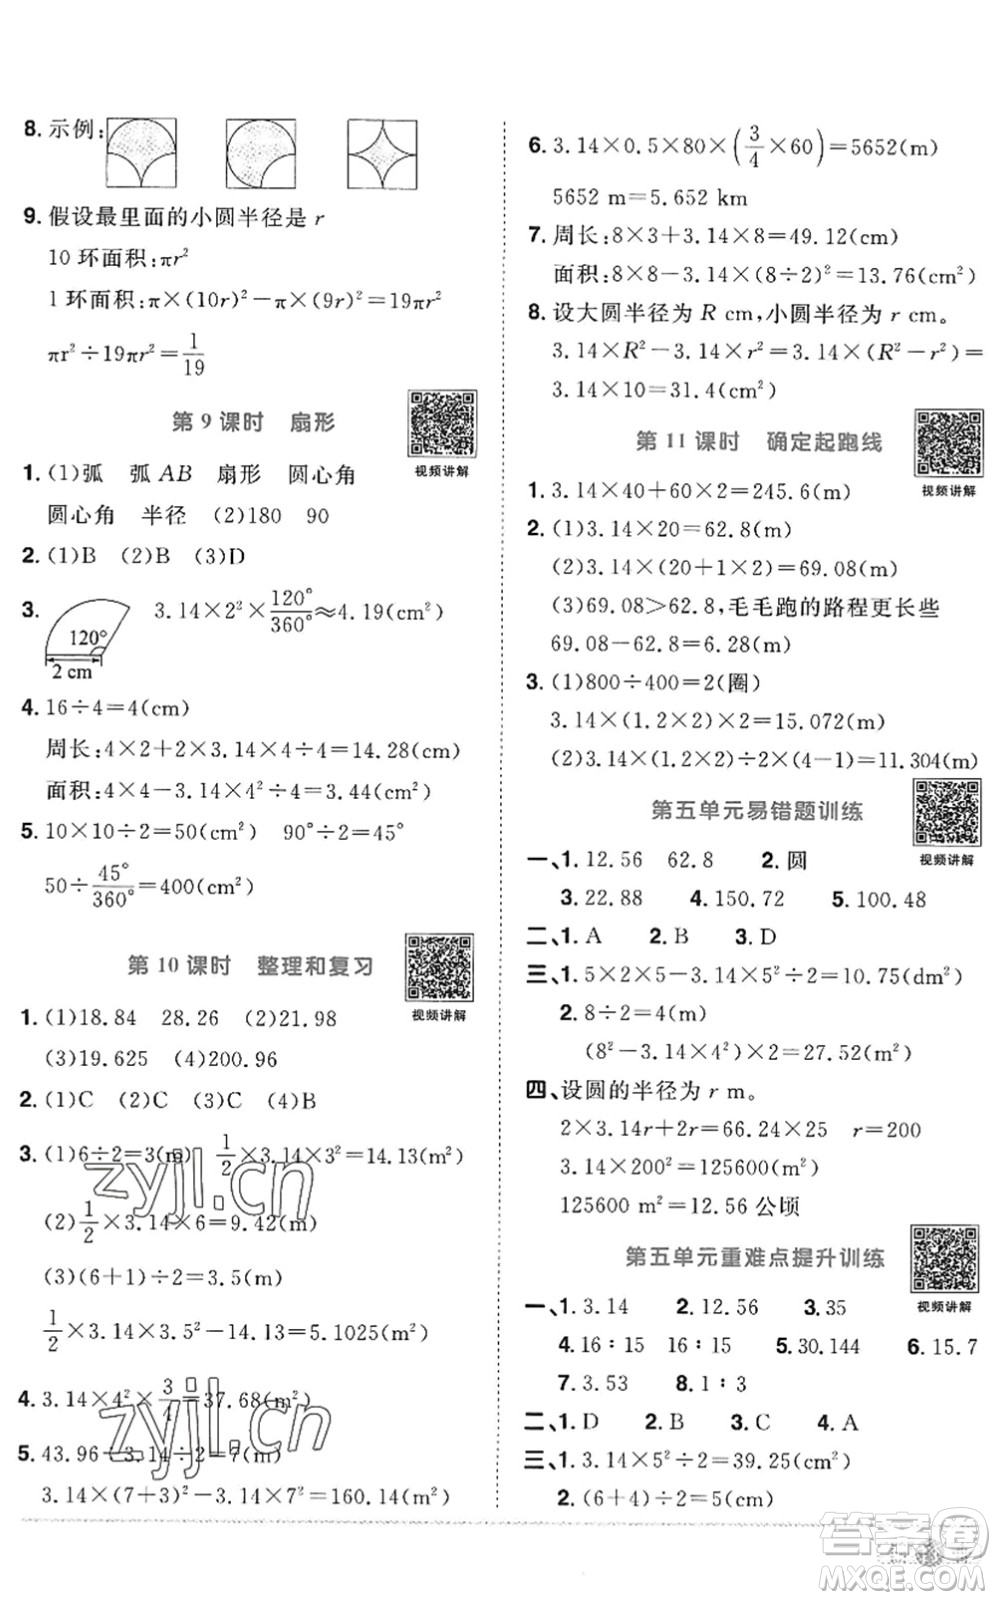 8. 示例:
9. 假设最里面的小圆半径是 r
10 环面积:πr²
1 环面积:π×(10r)²－π×(9r)²＝19πr²
πr²÷19πr²＝1/19
第 9 课时 扇形
视频讲解
1. (1)弧 弧 AB 扇形 圆心角
圆心角 半径 (2)180 90
2. (1)B (2)B (3)D
3. 120° 2 cm 3.14×2²×120°/360°≈4.19(cm²)
4. 16÷4＝4(cm)
周长:4×2＋2×3.14×4÷4＝14.28(cm)
面积:4×4－3.14×4²÷4＝3.44(cm²)
5. 10×10÷2＝50(cm²) 90°÷2＝45°
50÷45°/360°＝400(cm²)
第 10 课时 整理和复习
视频讲解
1. (1)18.84 28.26 (2)21.98
(3)19.625 (4)200.96
2. (1)C (2)C (3)C (4)B
3. (1)6÷2＝3(m) 1/2×3.14×3²＝14.13(m²)
(2)1/2×3.14×6＝9.42(m)
(3)(6＋1)÷2＝3.5(m)
1/2×3.14×3.5²－14.13＝5.1025(m²)
4. 3.14×4²×3/4＝37.68(m²)
5. 43.96÷3.14÷2＝7(m)
3.14×(7＋3)²－3.14×7²＝160.14(m²)
6. 3.14×0.5×80×(3/4×60)＝5652(m)
5652 m＝5.652 km
7. 周长:8×3＋3.14×8＝49.12(cm)
面积:8×8－3.14×(8÷2)²＝13.76(cm²)
8. 设大圆半径为 R cm,小圆半径为 r cm。
3.14×R²－3.14×r²＝3.14×(R²－r²)＝
3.14×10＝31.4(cm²)
第 11 课时 确定起跑线
视频讲解
1. 3.14×40＋60×2＝245.6(m)
2. (1)3.14×20＝62.8(m)
(2)3.14×(20＋1×2)＝69.08(m)
(3)69.08＞62.8,毛毛跑的路程更长些
69.08－62.8＝6.28(m)
3. (1)800÷400＝2(圈)
3.14×(1.2×2)×2＝15.072(m)
(2)3.14×(1.2×2)÷2×(4－1)＝11.304(m)
第五单元易错题训练
视频讲解
一、1. 12.56 62.8 2. 圆
3. 22.88 4. 150.72 5. 100.48
二、1. A 2. B 3. D
三、1. 5×2×5－3.14×5²÷2＝10.75(dm²)
2. 8÷2＝4(m)
(8²－3.14×4²)×2＝27.52(m²)
四、设圆的半径为 r m。
2×3.14r＋2r＝66.24×25 r＝200
3.14×200²＝125600(m²)
125600 m²＝12.56 公顷
第五单元重难点提升训练
视频讲解
一、1. 3.14 2. 12.56 3. 35
4. 16∶15 16∶15 5. 30.144 6. 15.7
7. 3.53 8. 1∶3
二、1. D 2. B 3. C 4. A
三、1. 3.14×5²÷2＝39.25(cm²)
2. (6＋4)÷2＝5(cm)
zyjl.cn
zyjl.cn
答案圈
MXQE.COM